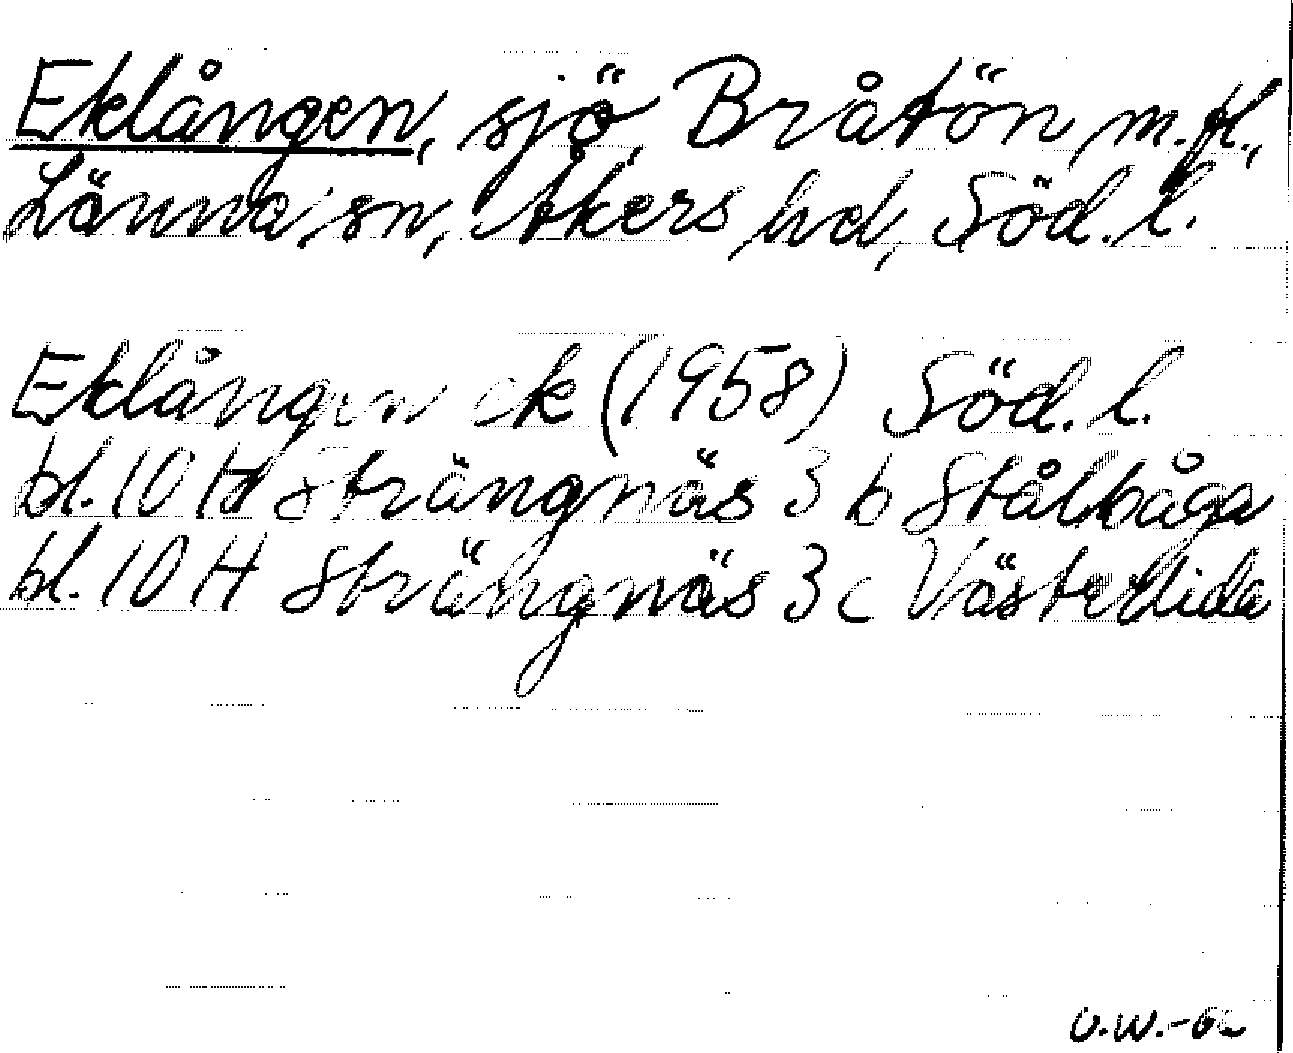 Eklången, sjö, Bråtön, m.fl.,
Länna sn, Åkers hd, Söd. l.
Eklången ek (1958) Söd. l.
bl. 10 H Strängnäs 3 b Stålbåga
bl. 10 H Strängnäs 3 c
U.W.-62